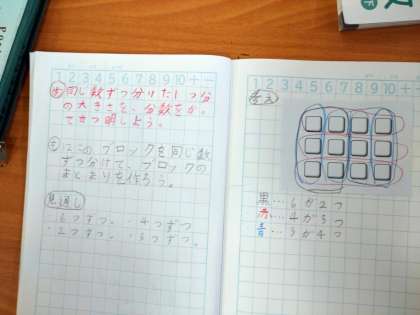 1 2 3 4 5 6 7 8 9 10 + −
め 同じ数ずつ分けた1つ分
の大きさを、分数をかっ
てせつ明しよう。
も ここのブロックを同じ数
ずつ分けて、ブロックの
まとまりを作ろう。
見通し
・6つずつ。・4つずつ
・2つずつ。・3つずつ。
1 2 3 4 5 6 7 8 9 10 + −
考え
黒…6が2つ
赤…4が3つ
青…3が4つ
下